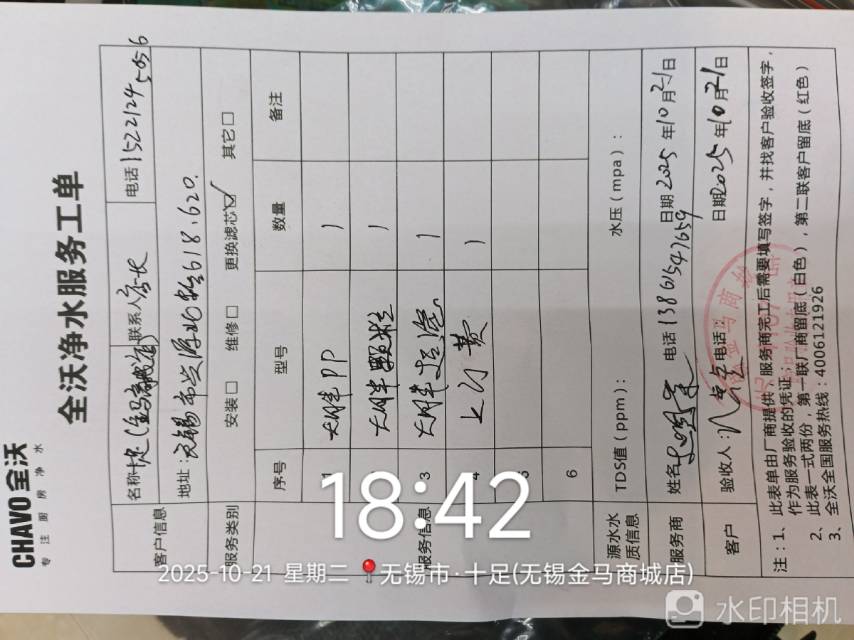 CHAVO 全沃
专注厨房净水
全沃净水服务工单
客户信息 名称 联系人 店长 电话 15221245056
地址: 618.620.
服务类别 安装□ 维修□ 更换滤芯☑ 其它□
服务信息 序号 型号 数量 备注
PP 1
颗粒 1
3 1
4 上门费 1
5
6
源水水质信息 TDS值(ppm): 水压(mpa):
服务商 姓名 电话 13861547659 日期 2025年10月21日
客户 验收人: 电话: 日期 2025年10月21日
注: 1、此表单由厂商提供,服务商完工后需要填写签字,并找客户验收签字,
作为服务验收的凭证;
2、此表一式两份,第一联厂商留底(白色),第二联客户留底(红色)
3、全沃全国服务热线:4006121926
18:42
2025-10-21 星期二 无锡市·十足(无锡金马商城店)
水印相机